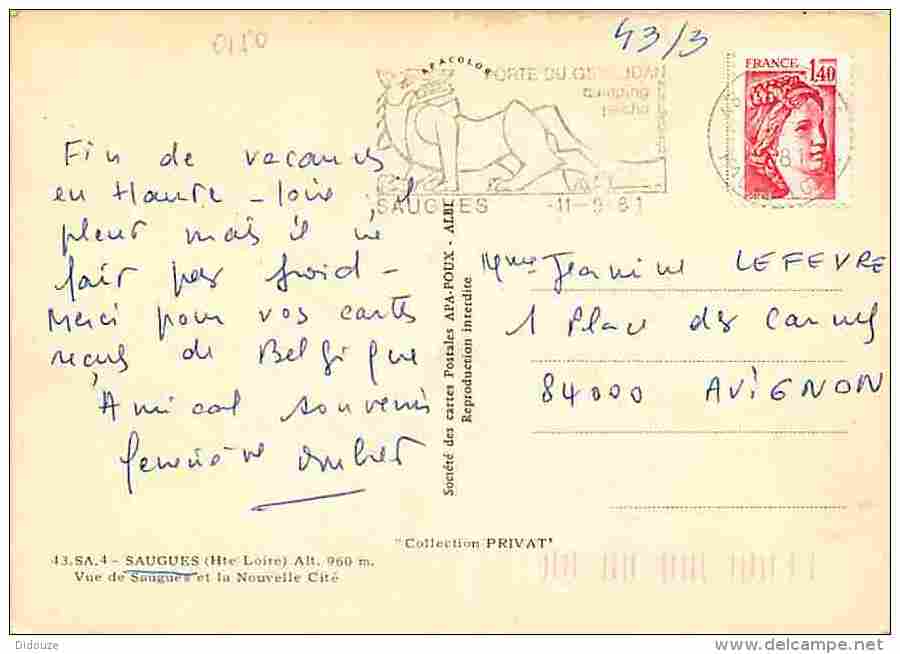 43/3
APACOLOR
PORTE DU GEVAUDAN
camping
pêche
SAUGUES 11-9-81
FRANCE 1,40
Fin de vacances
en Haute-Loire, il
pleut mais il ne
fait pas froid -
Merci pour vos cartes
reçus de Belgique
Amical souvenir
Geneviève
Mme Jeanine LEFEVRE
1 Place des Carmes
84000 AVIGNON
Société des cartes Postales APA-POUX - ALBI
Reproduction interdite
"Collection PRIVAT"
43.SA.4 - SAUGUES (Hte Loire) Alt. 960 m.
Vue de Saugues et la Nouvelle Cité
Didouze
delcampe.net